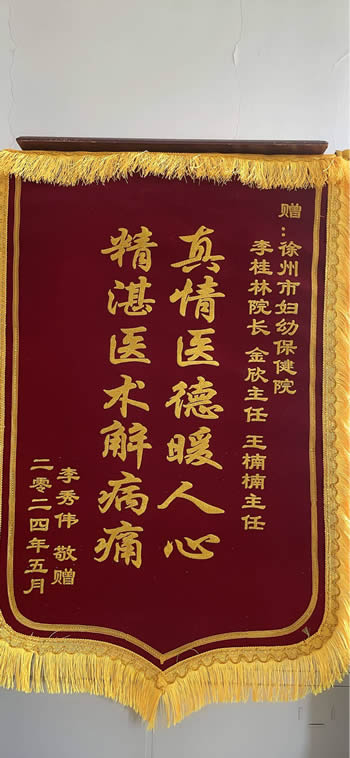 赠：徐州市妇幼保健院
李桂林院长 金欣主任 王楠楠主任
真情医德暖人心
精湛医术解病痛
李秀伟 敬赠
二零二四年五月